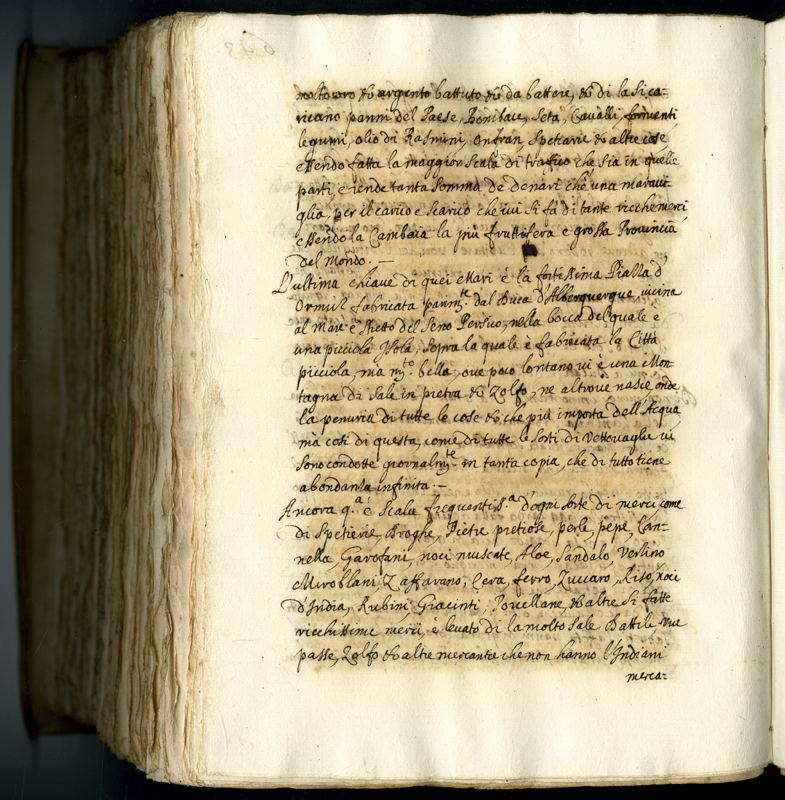 molto oro et argento battuto et da battere, et di la si ca-
ricano panni del Paese, Bombace, Seta, Cavalli, formenti
legumi, olio di Rasmini, Onfran, Spetiarie et altre cose
essendo fatta la maggior Scala di trafico che sia in quelle
parti, e rende tanta somma de denari che una maravi-
glia, per il carico e scarico che ivi si fà di tante ricche merci
essendo la Cambaia la più fruttifera e grossa Provincia
del Mondo. —
L'ultima chiave di quei Mari è la fortissima Piazza d'
Ormus fabricata parim.te dal Duca d'Alberquerque vicina
al Mare e stretto del Seno Persico, nella bocca del quale è
una picciola Isola, sopra la quale è fabricata la Città
picciola, ma m.to bella, ove poco lontano vi è una Mon-
tagna di Sale in pietra et Zolfo, ne altrove nasce onde
la penuria di tutte le cose et che più importa dell'Acqua
mà così di questa, come di tutte le sorti di Vettovaglie vi
sono condotte giornalm.te in tanta copia, che di tutto tiene
abondanza infinita. —
Ancora q.a è Scala frequentis.a d'ogni sorte di merci come
di Spetierie, Droghe, Pietre pretiose, perle, pepe, Can-
nella, Garofani, noci muscate, Aloe, Sandalo, Verzino
Miroblani Zaffarano, Cera, ferro, Zuccaro, Riso, noci
d'India, Rubini, Giacinti, Porcellane, et altre si fatte
ricchissime merci, è levato di la molto Sale Dattili uve
passe, Zolfo et altre mercantie che non hanno l'Indiani
merca-